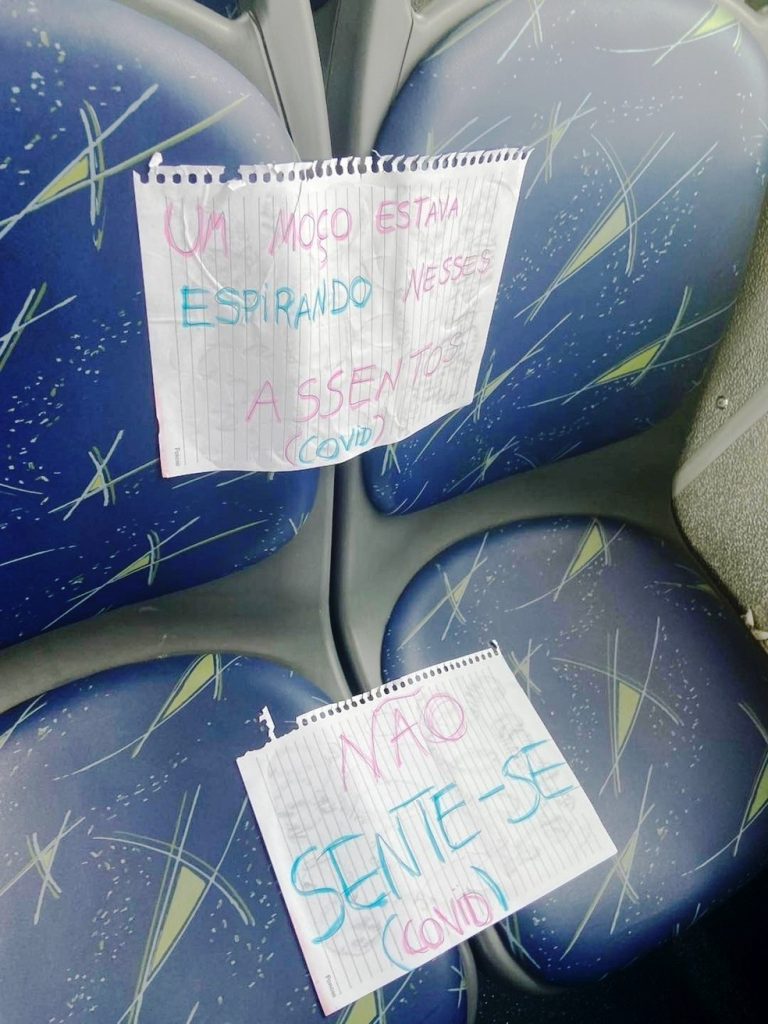 UM MOÇO ESTAVA
ESPIRANDO NESSES
ASSENTOS
(COVID)
NÃO
SENTE-SE
(COVID)